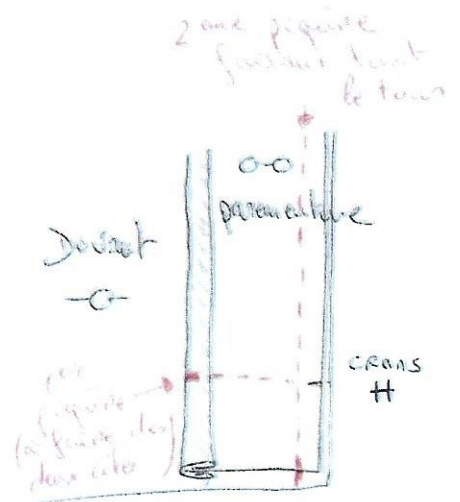 2 eme piqûre
faisant tout
le tour
parementure
Devant
CRANS
H
1er
piqûre
(à faire des
deux côtés)